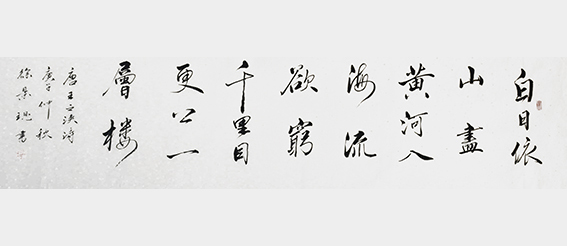 白日依
山盡
黃河入
海流
欲窮
千里目
更上一
層樓
唐王之渙詩
庚子仲秋
徐景書